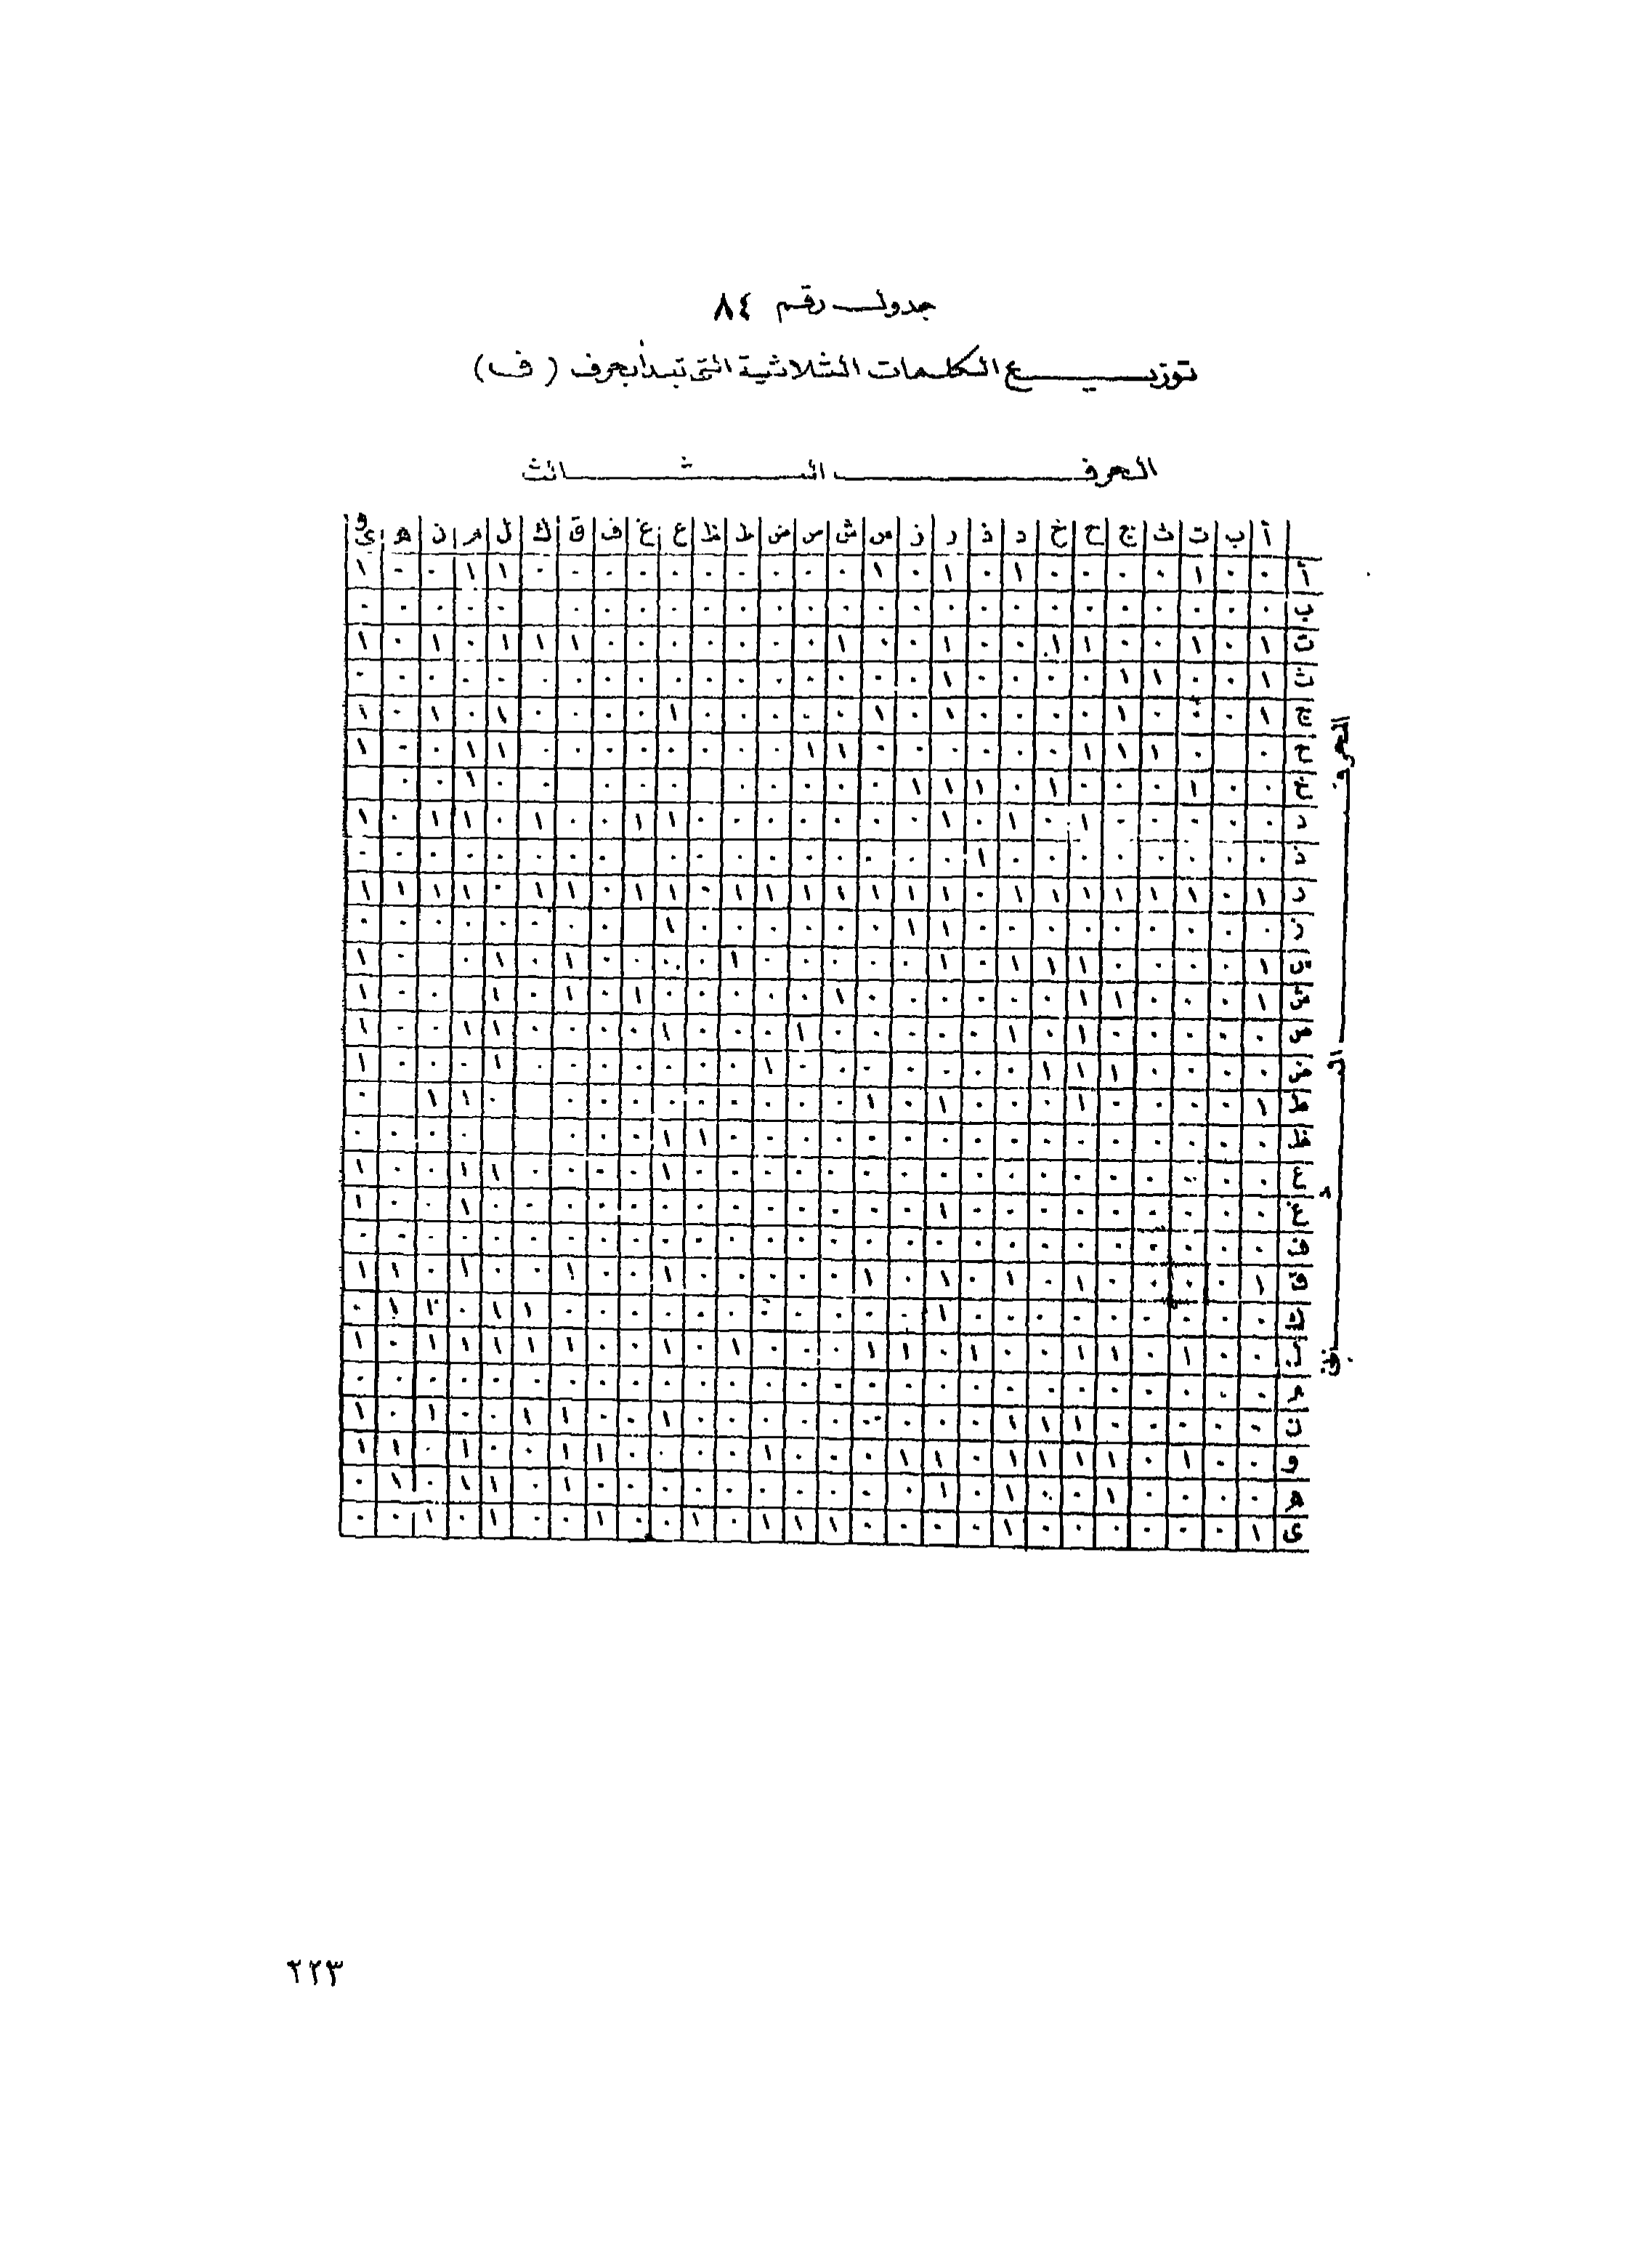 جدول رقم ٨٤
توزيع الكلمات الثلاثية التى تبدأ بحرف (ف)
الحرف الثالث
أ ب ت ث ج ح خ د ذ ر ز س ش ص ض ط ظ ع غ ف ق ك ل م ن ه و ى
أ ٠ ٠ ١ ٠ ٠ ٠ ٠ ١ ٠ ١ ٠ ١ ٠ ٠ ٠ ٠ ٠ ٠ ٠ ٠ ٠ ٠ ١ ١ ٠ ٠ ١
ب ٠ ٠ ٠ ٠ ٠ ٠ ٠ ٠ ٠ ٠ ٠ ٠ ٠ ٠ ٠ ٠ ٠ ٠ ٠ ٠ ٠ ٠ ٠ ٠ ٠ ٠
ت ١ ٠ ١ ٠ ٠ ١ ١ ٠ ٠ ١ ٠ ٠ ١ ٠ ٠ ٠ ٠ ٠ ٠ ٠ ١ ١ ١ ٠ ١ ٠ ١
ث ١ ٠ ٠ ١ ١ ٠ ٠ ٠ ٠ ١ ٠ ٠ ٠ ٠ ٠ ٠ ٠ ٠ ٠ ٠ ٠ ٠ ٠ ٠ ٠ ٠ ٠
ج ١ ٠ ٠ ٠ ١ ٠ ٠ ٠ ٠ ١ ٠ ١ ٠ ٠ ٠ ٠ ٠ ١ ٠ ٠ ٠ ٠ ١ ٠ ١ ٠ ١
ح ٠ ٠ ١ ١ ١ ٠ ٠ ٠ ٠ ٠ ٠ ١ ١ ٠ ٠ ٠ ٠ ٠ ٠ ٠ ٠ ١ ١ ٠ ٠ ١
خ ٠ ٠ ١ ٠ ٠ ٠ ١ ٠ ١ ١ ١ ٠ ٠ ٠ ٠ ٠ ٠ ٠ ٠ ٠ ٠ ٠ ١ ٠ ٠
د ٠ ٠ ٠ ٠ ٠ ١ ٠ ١ ٠ ١ ٠ ٠ ٠ ٠ ٠ ٠ ٠ ١ ١ ٠ ٠ ١ ٠ ١ ١ ٠ ١
ذ ٠ ٠ ٠ ٠ ٠ ٠ ٠ ٠ ١ ٠ ٠ ٠ ٠ ٠ ٠ ٠ ٠ ٠ ٠ ٠ ٠ ٠ ٠ ٠ ٠ ٠
ر ١ ٠ ١ ١ ١ ١ ١ ١ ٠ ١ ١ ١ ١ ١ ١ ١ ٠ ١ ١ ٠ ١ ١ ٠ ١ ١ ١ ١
ز ٠ ٠ ٠ ٠ ٠ ٠ ٠ ٠ ٠ ١ ١ ٠ ٠ ٠ ٠ ٠ ٠ ١ ٠ ٠ ٠ ٠ ٠ ٠ ٠ ٠
س ١ ٠ ٠ ٠ ٠ ١ ١ ١ ٠ ١ ٠ ٠ ٠ ٠ ٠ ١ ٠ ٠ ٠ ٠ ١ ٠ ١ ٠ ٠ ١
ش ١ ٠ ٠ ٠ ١ ١ ٠ ٠ ٠ ٠ ٠ ٠ ١ ٠ ٠ ٠ ٠ ٠ ١ ٠ ١ ٠ ١ ٠ ٠ ١
ص ٠ ٠ ٠ ٠ ٠ ١ ٠ ١ ٠ ٠ ٠ ٠ ٠ ١ ٠ ٠ ٠ ١ ٠ ٠ ٠ ٠ ١ ١ ٠ ٠ ١
ض ٠ ٠ ٠ ٠ ١ ١ ١ ٠ ٠ ٠ ٠ ٠ ٠ ٠ ١ ٠ ٠ ٠ ٠ ٠ ٠ ٠ ١ ٠ ٠ ٠ ١
ط ١ ٠ ٠ ٠ ٠ ١ ٠ ٠ ٠ ١ ٠ ١ ٠ ٠ ٠ ٠ ٠ ٠ ٠ ٠ ٠ ٠ ١ ١ ٠
ظ ٠ ٠ ٠ ٠ ٠ ٠ ٠ ٠ ٠ ٠ ٠ ٠ ٠ ٠ ٠ ٠ ١ ١ ٠ ٠ ٠ ٠ ٠ ٠ ٠
ع ٠ ٠ ٠ ٠ ٠ ٠ ٠ ٠ ٠ ٠ ٠ ٠ ٠ ٠ ٠ ٠ ٠ ١ ٠ ٠ ٠ ٠ ١ ١ ٠ ٠ ١
غ ٠ ٠ ٠ ٠ ٠ ٠ ٠ ٠ ٠ ١ ٠ ٠ ٠ ٠ ٠ ٠ ٠ ٠ ٠ ٠ ٠ ٠ ٠ ١ ٠ ٠ ١
ف ٠ ٠ ٠ ٠ ٠ ٠ ٠ ٠ ٠ ٠ ٠ ٠ ٠ ٠ ٠ ٠ ٠ ٠ ٠ ٠ ٠ ٠ ٠ ٠ ٠ ٠ ٠
ق ١ ٠ ٠ ٠ ٠ ١ ٠ ١ ٠ ١ ٠ ١ ٠ ٠ ٠ ٠ ٠ ١ ٠ ٠ ١ ٠ ٠ ١ ٠ ١ ١
ك ٠ ٠ ٠ ٠ ٠ ٠ ٠ ٠ ٠ ١ ٠ ٠ ٠ ٠ ٠ ٠ ٠ ٠ ٠ ٠ ٠ ١ ١ ٠ ١ ١ ٠
ل ٠ ٠ ١ ٠ ١ ١ ٠ ٠ ١ ٠ ١ ١ ٠ ٠ ٠ ١ ٠ ١ ٠ ٠ ١ ١ ١ ١ ١ ٠ ١
م ٠ ٠ ٠ ٠ ٠ ٠ ٠ ٠ ٠ ٠ ٠ ٠ ٠ ٠ ٠ ٠ ٠ ٠ ٠ ٠ ٠ ٠ ٠ ٠ ٠ ٠ ٠
ن ٠ ٠ ٠ ٠ ٠ ١ ١ ١ ٠ ٠ ٠ ٠ ٠ ٠ ٠ ٠ ٠ ١ ٠ ٠ ١ ١ ٠ ٠ ١ ٠ ١
و ٠ ٠ ١ ٠ ١ ١ ١ ١ ٠ ١ ١ ٠ ٠ ٠ ١ ٠ ٠ ٠ ٠ ١ ١ ٠ ٠ ١ ٠ ١ ١
ه ٠ ٠ ٠ ٠ ١ ٠ ٠ ١ ٠ ١ ٠ ٠ ٠ ٠ ٠ ٠ ٠ ٠ ٠ ٠ ١ ٠ ١ ١ ٠ ١ ٠
ى ١ ٠ ٠ ٠ ٠ ٠ ٠ ١ ٠ ٠ ٠ ٠ ١ ١ ١ ٠ ١ ٠ ٠ ١ ٠ ٠ ١ ٠ ١ ٠ ٠
الحرف الثانى
٢٢٣